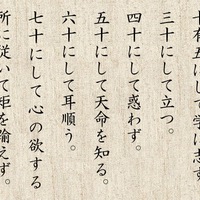 十有五にして学に志す
三十にして立つ。
四十にして惑わず。
五十にして天命を知る。
六十にして耳順う。
七十にして心の欲する
所に従いて矩を踰えず。